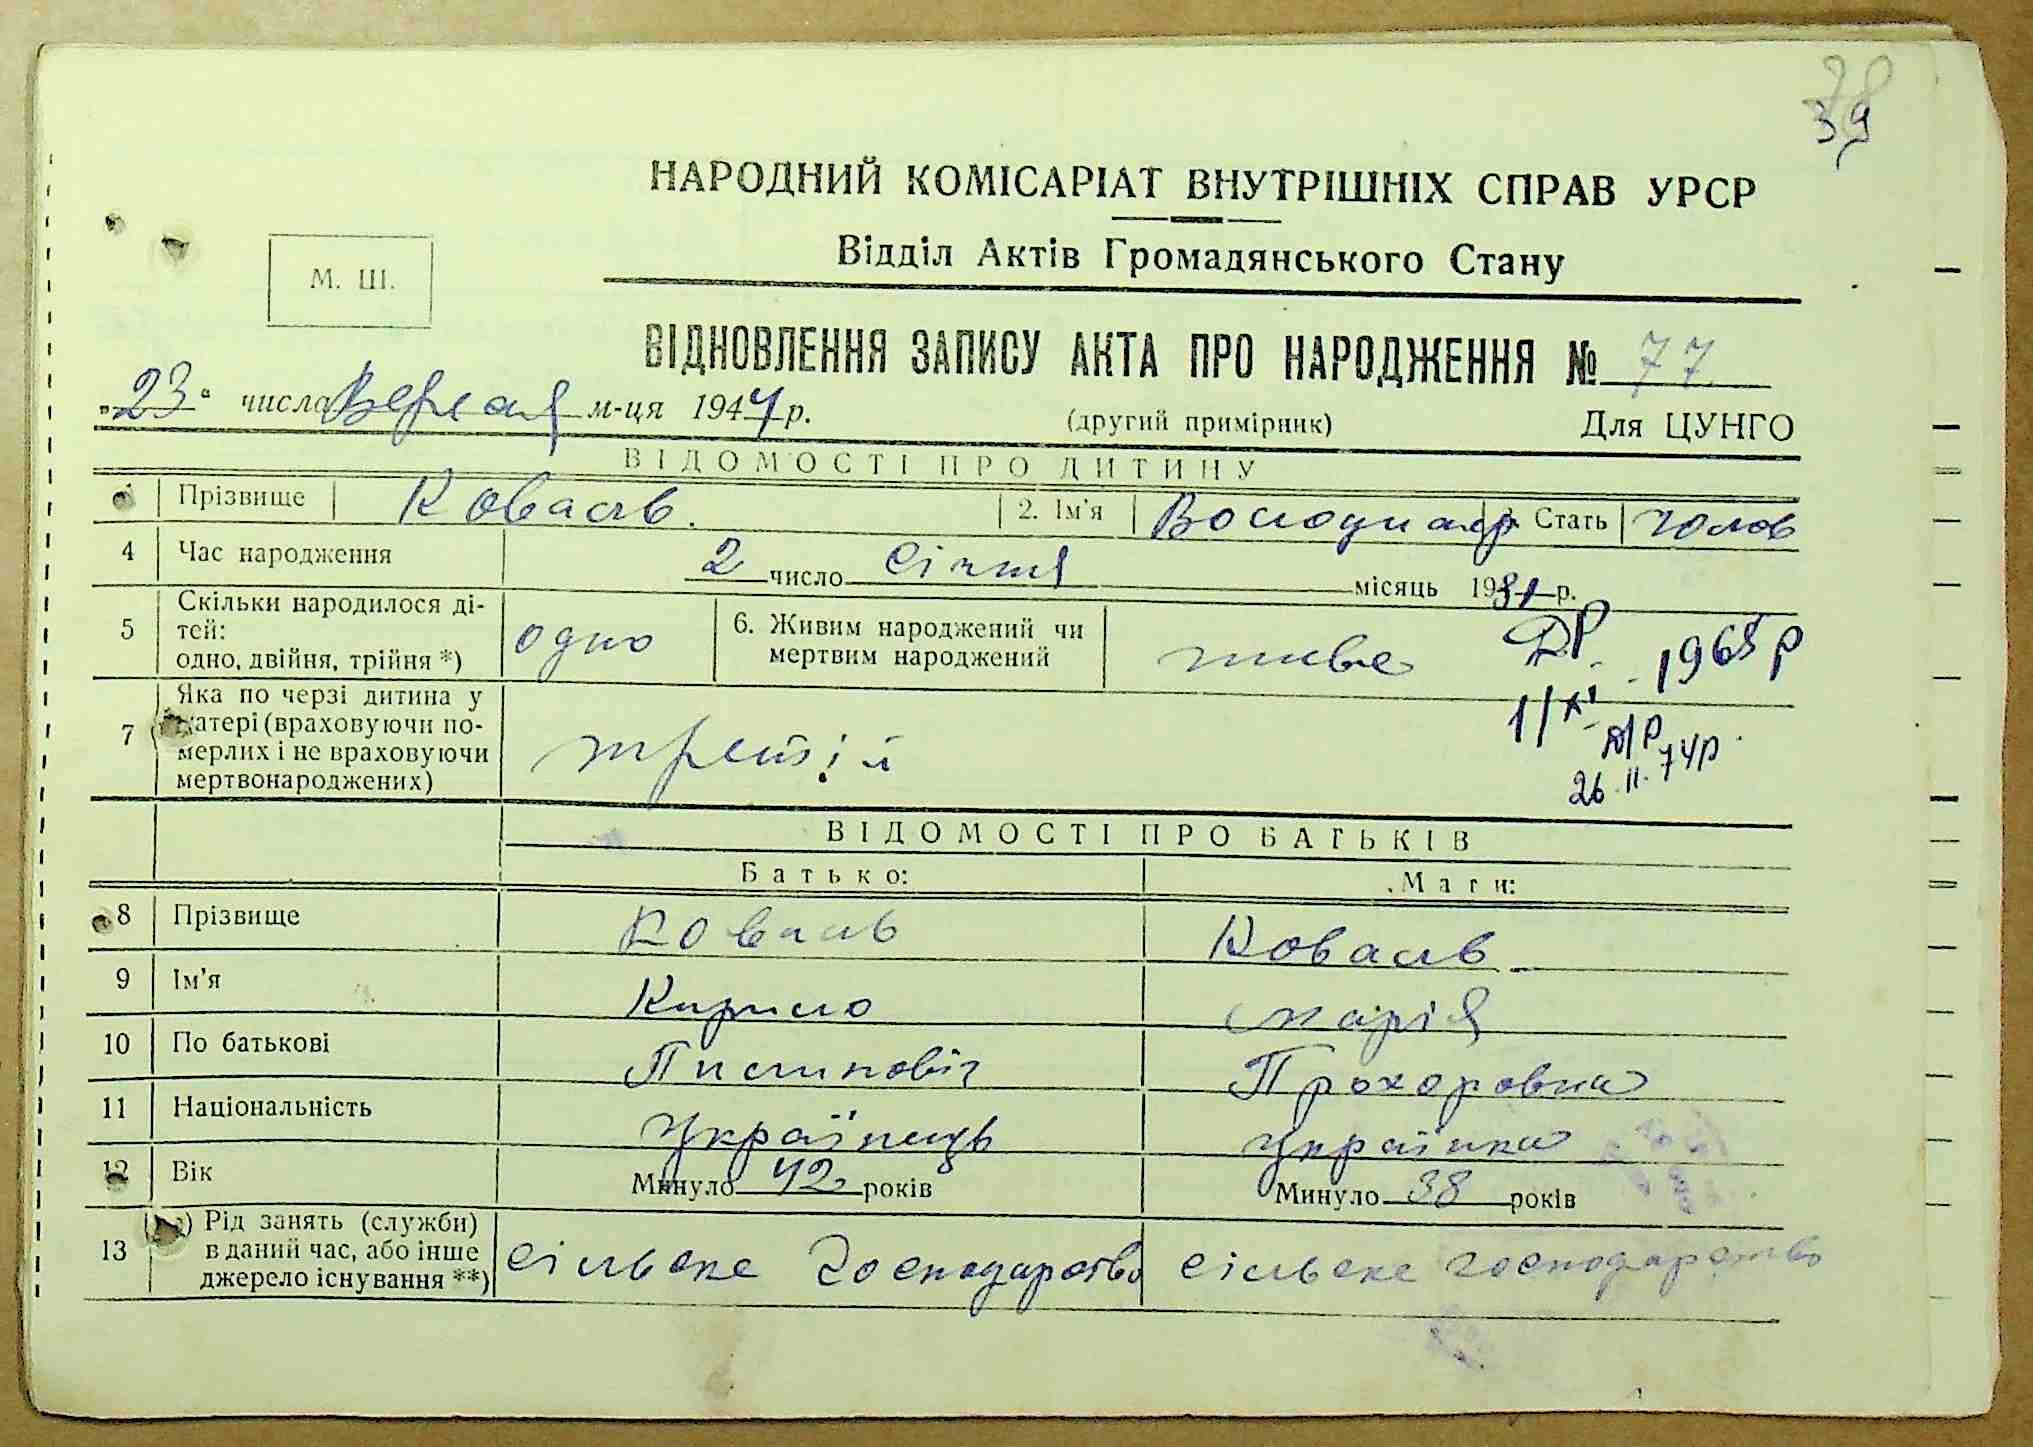 39
НАРОДНИЙ КОМІСАРІАТ ВНУТРІШНІХ СПРАВ УРСР
Відділ Актів Громадянського Стану
М. Ш.
ВІДНОВЛЕННЯ ЗАПИСУ АКТА ПРО НАРОДЖЕННЯ № 77
"23" числа Вересня м-ця 1944 р. (другий примірник) Для ЦУНГО
ВІДОМОСТІ ПРО ДИТИНУ
Прізвище Коваль. 2. Ім'я Володимир Стать чолов
4 Час народження 2 число Січня місяць 1931 р.
5 Скільки народилося ді-
тей:
одно, двійня, трійня *) одно
6. Живим народжений чи
мертвим народжений живе
ДР 1/XI - 1965 р
7 Яка по черзі дитина у
матері (враховуючи по-
мерлих і не враховуючи
мертвонароджених) третій
26.II.74р.
ВІДОМОСТІ ПРО БАТЬКІВ
Батько: Мати:
8 Прізвище Коваль Коваль
9 Ім'я Кирило Марія
10 По батькові Пилипович Прохоровна
11 Національність Українець Українка
12 Вік Минуло 42 років Минуло 38 років
13 Рід занять (служби)
в даний час, або інше
джерело існування **) сільське господарство сільське господарство